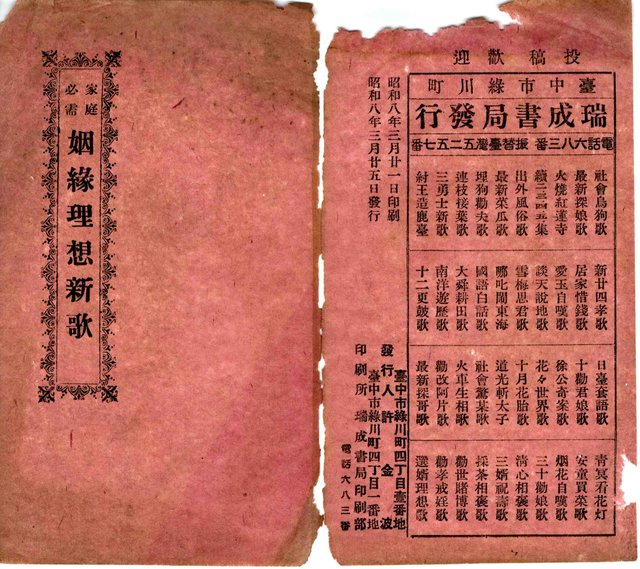 家庭
必需
姻緣理想新歌
投稿歡迎
臺中市綠川町
瑞成書局發行
電話六八三番 振替臺灣五二五七番
社會烏狗歌
最新探娘歌
火燒紅蓮寺
續二三四五集
出外風俗歌
最新菜瓜歌
埋狗勸夫歌
連枝接葉歌
三勇士新歌
紂王造鹿臺
新廿四孝歌
居家惜錢歌
愛玉自嘆歌
談天說地歌
雪梅思君歌
哪叱鬧東海
國語白話歌
大舜耕田歌
南洋遊歷歌
十二更皷歌
日臺套語歌
十勸君娘歌
徐公奇案歌
花々世界歌
十月花胎歌
道光斬太子
社會驚某歌
火車生相歌
勸改阿片歌
最新探哥歌
青冥看花灯
安童買菜歌
烟花自嘆歌
三十勸娘歌
清心相褒歌
三婿祝壽歌
採茶相褒歌
勸世賭博歌
勸孝戒娶歌
選婿理想歌
昭和八年三月廿一日印刷
昭和八年三月廿五日發行
臺中市綠川町四丁目壹番地
發行人 許金波
臺中市綠川町四丁目一番地
印刷所 瑞成書局印刷部
電話六八三番